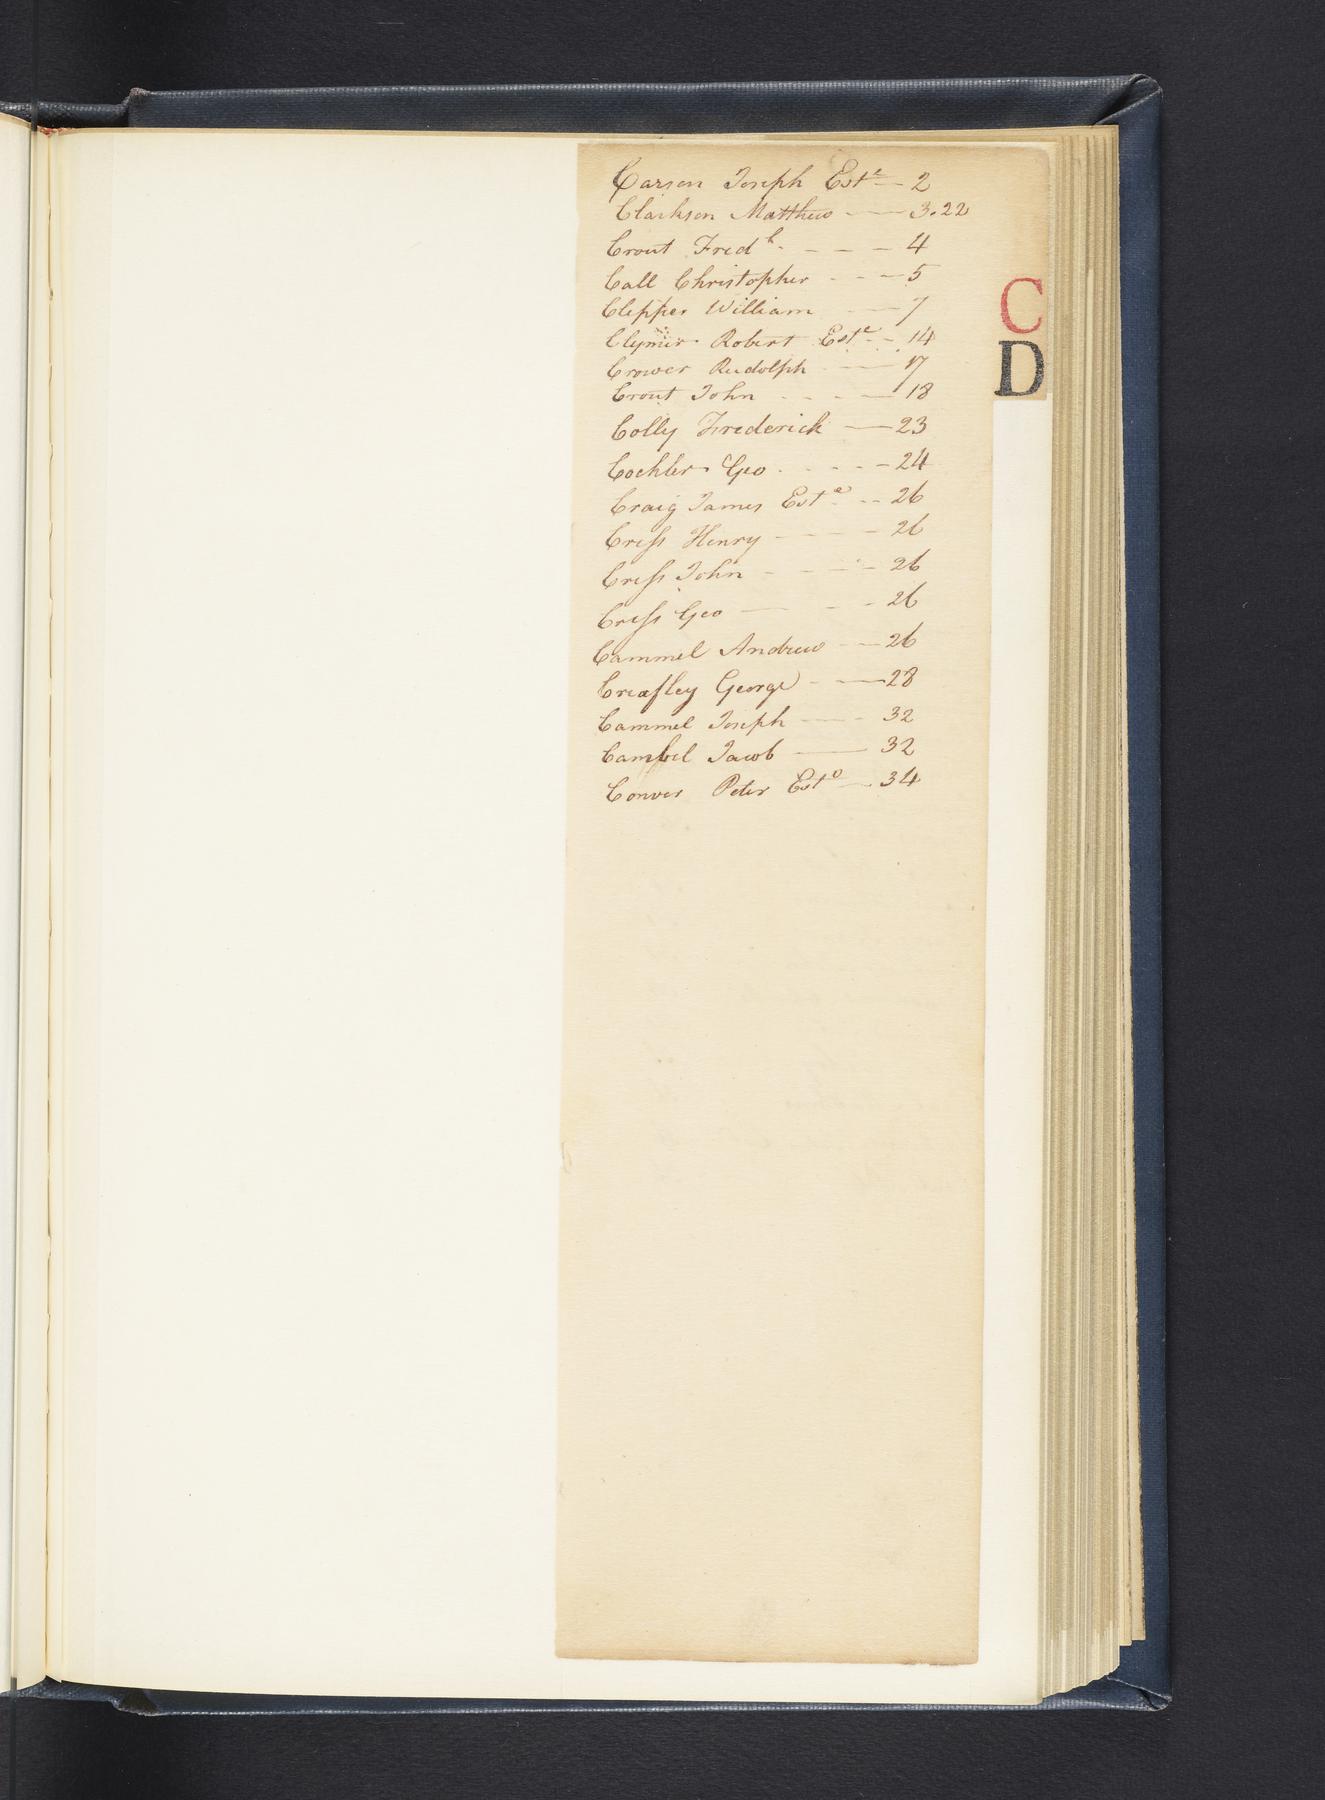 Carson Joseph Estᵉ — 2
Clarkson Matthew — 3.22
Crout Fredᵏ. - - - 4
Call Christopher - - - 5
Clepper William — 7
Clymer Robert Estᵉ - - 14
Crower Rudolph - — 17
Crout John - - - — 18
Colly Frederick — 23
Cochler Geo - - - - 24
Craig James Estᵉ - - 26
Creſs Henry - - - - 26
Creſs John - - - - 26
Creſs Geo — - - 26
Cammel Andrew - — 26
Creafley George - — 28
Cammel Joseph — - 32
Cambel Jacob — 32
Conver Peter Estᵉ — 34
C
D